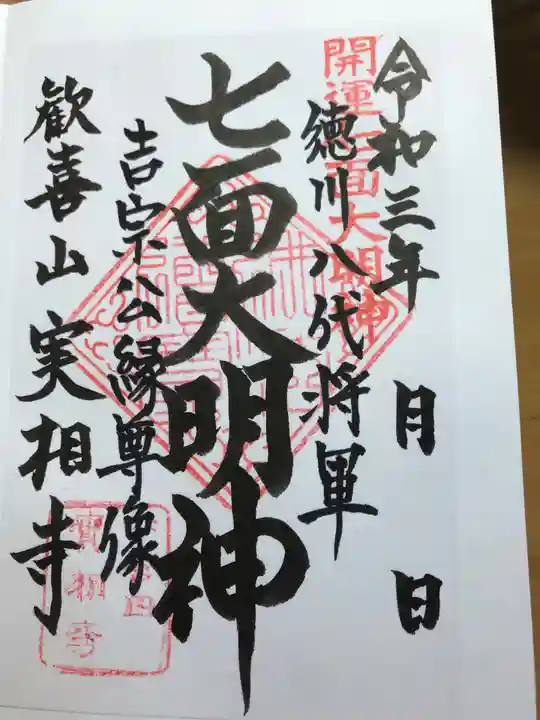 令和三年 月 日
開運七面大明神
徳川八代将軍
七面大明神
吉宗公縁尊像
歓喜山実相寺